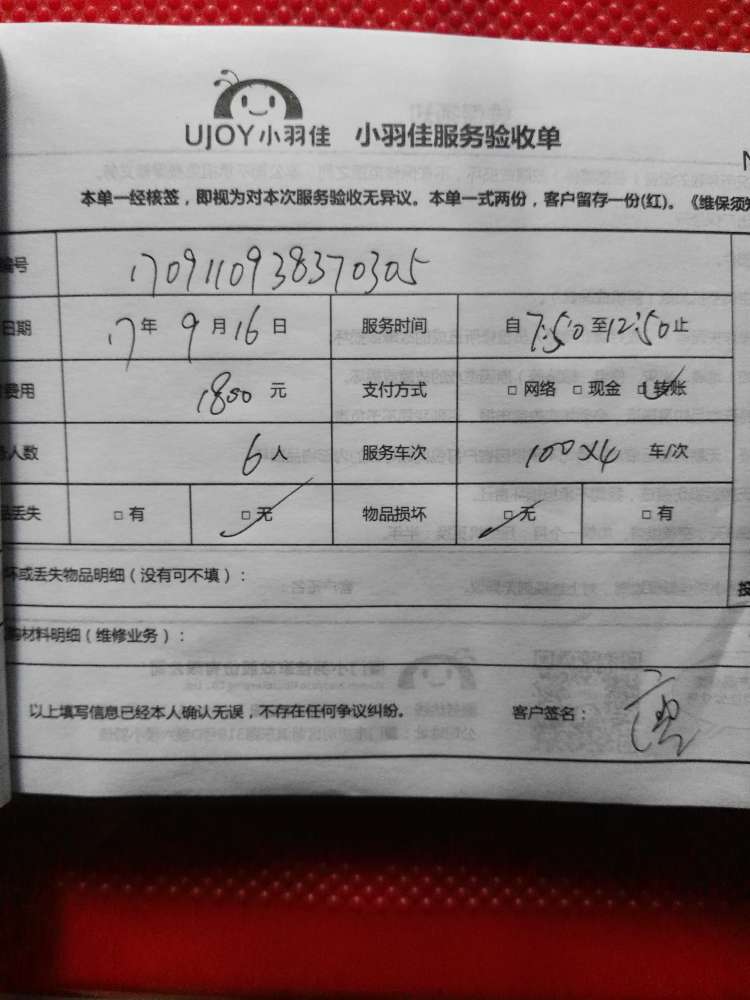 UJOY小羽佳 小羽佳服务验收单
N
本单一经核签，即视为对本次服务验收无异议。本单一式两份，客户留存一份(红)。《维保须知
编号 1709110938370305
日期 17年9月16日 服务时间 自7:50至12:50止
费用 1800元 支付方式 □网络 □现金 □转账
人数 6人 服务车次 100X4 车/次
品丢失 □有 □无 物品损坏 □无 □有
坏或丢失物品明细（没有可不填）：
购材料明细（维修业务）：
以上填写信息已经本人确认无误，不存在任何争议纠纷。 客户签名：